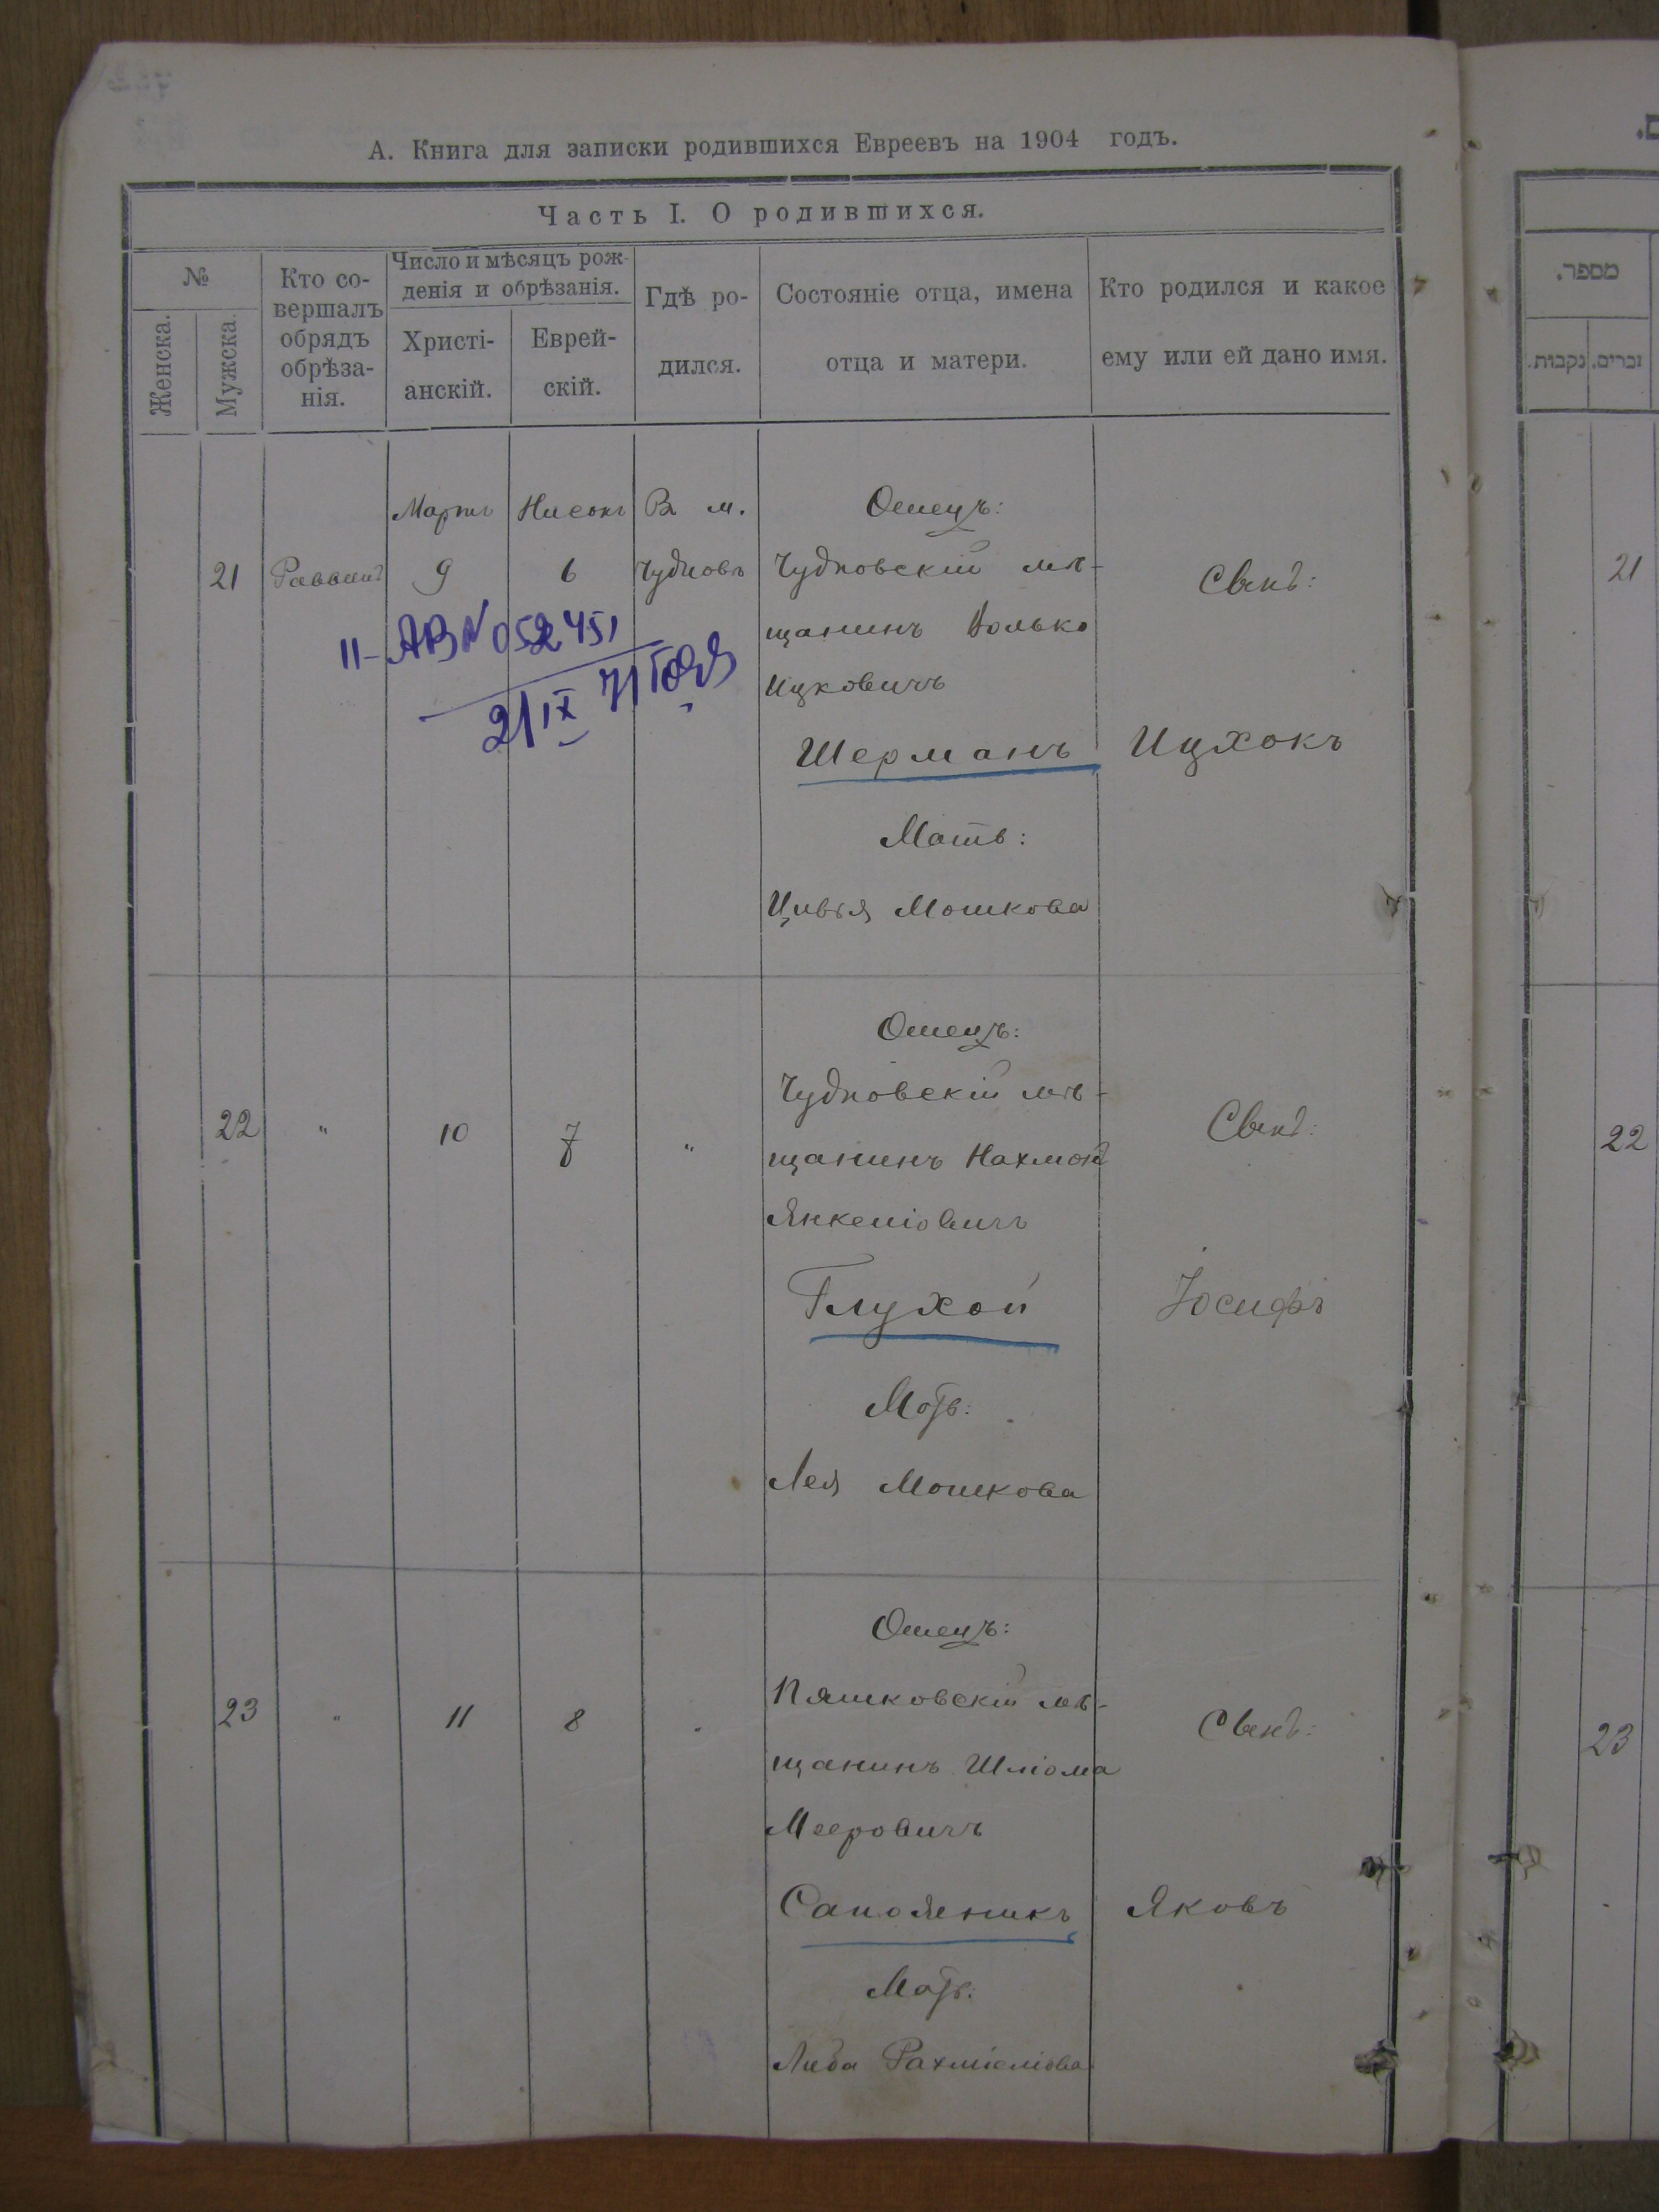 А. Книга для записки родившихся Евреевъ на 1904 годъ.
Часть I. О родившихся.
№
Женска.
Мужска.
Кто со-
вершалъ
обрядъ
обрѣза-
нія.
Число и мѣсяцъ рож-
денія и обрѣзанія.
Христі-
анскій.
Еврей-
скій.
Гдѣ ро-
дился.
Состояніе отца, имена
отца и матери.
Кто родился и какое
ему или ей дано имя.
21
Раввинъ
Мартъ
9
Нисонъ
6
Въ м.
Чудновъ
Отецъ:
Чудновскій мѣ-
щанинъ Волько
Ицковичъ
Шерманъ
Мать:
Цивья Мошкова
Сынъ:
Ицхокъ
II-АВ № 052451
21 IX 71 года
22
"
10
7
"
Отецъ:
Чудновскій мѣ-
щанинъ Нахмонъ
Янкеліовичъ
Глухой
Мать:
Лея Мошкова
Сынъ:
Іосифъ
23
"
11
8
"
Отецъ:
мѣ-
щанинъ Шліома
Мееровичъ
Мать:
Рахміеліова
Сынъ:
Яковъ
מספר.
זכרים.
נקבות.
21
22
23